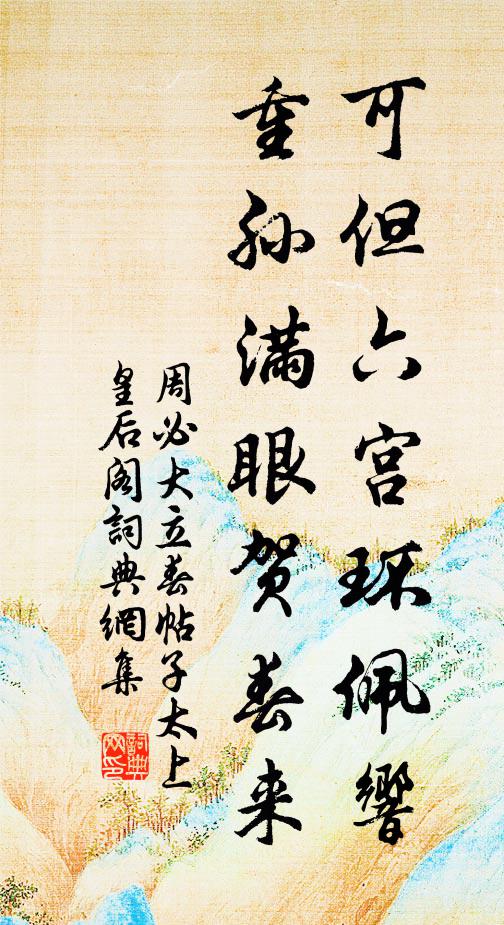 可但六宫环佩響
重孙满眼贺春来
周必大立春帖子太上
皇后阁詞典網集
詞典
网印